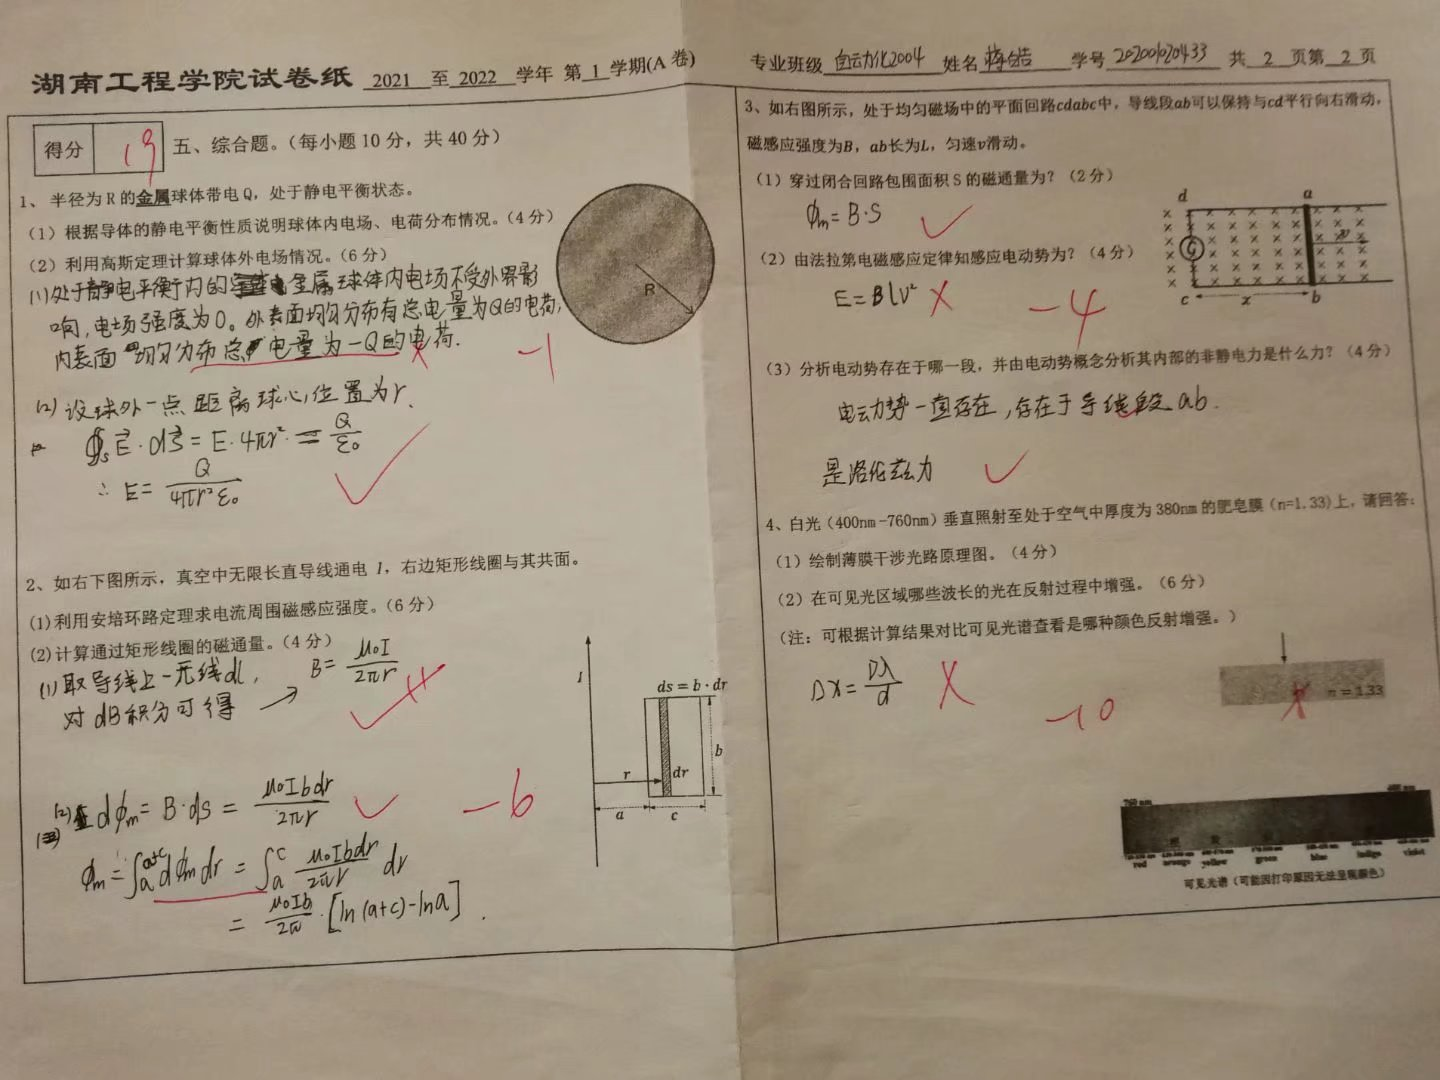 湖南工程学院试卷纸 2021 至 2022 学年 第 1 学期(A 卷)
专业班级 自动化2004 姓名 学号 202001020433 共 2 页第 2 页
得分 19 五、综合题。(每小题 10 分，共 40 分)
1、 半径为 R 的金属球体带电 Q，处于静电平衡状态。
(1) 根据导体的静电平衡性质说明球体内电场、电荷分布情况。(4 分)
(2) 利用高斯定理计算球体外电场情况。(6 分)
R
(1) 处于静电平衡内的金属球体内电场不受外界影
响，电场强度为0。外表面均匀分布有总电量为Q的电荷，
内表面均匀分布总电量为-Q的电荷. ×
-1
(2) 设球外一点距离球心位置为r.
∮s E⃗·dS⃗ = E·4πr² = Q/ε₀
∴ E= Q/4πr²ε₀
2、如右下图所示，真空中无限长直导线通电 I，右边矩形线圈与其共面。
(1)利用安培环路定理求电流周围磁感应强度。(6 分)
(2)计算通过矩形线圈的磁通量。(4 分)
(1) 取导线上一无线dl， B= μ₀I/2πr
对dB积分可得 →
I
ds = b · dr
b
r dr
a c
(2) dϕm = B·ds = μ₀Ibdr/2πr
-6
ϕm = ∫ₐᵃ⁺ᶜ dϕm dr = ∫ₐᶜ μ₀Ibdr/2πr dr
= μ₀Ib/2π · [ln(a+c)-lna].
3、如右图所示，处于均匀磁场中的平面回路cdabc中，导线段ab可以保持与cd平行向右滑动，
磁感应强度为B，ab长为L，匀速v滑动。
(1) 穿过闭合回路包围面积 S 的磁通量为? (2 分)
ϕm = B·S
d a
G v
c x b
(2) 由法拉第电磁感应定律知感应电动势为? (4 分)
E = Blv² ×
-4
(3) 分析电动势存在于哪一段，并由电动势概念分析其内部的非静电力是什么力? (4 分)
电动势一直存在，存在于导线段ab.
是洛伦兹力
4、白光 (400nm-760nm) 垂直照射至处于空气中厚度为 380nm 的肥皂膜 (n=1.33)上，请回答:
(1) 绘制薄膜干涉光路原理图。(4 分)
(2) 在可见光区域哪些波长的光在反射过程中增强。(6 分)
(注: 可根据计算结果对比可见光谱查看是哪种颜色反射增强。)
Δx = Dλ/d ×
-10
n = 1.33
760 nm
red orange yellow green blue indigo violet
可见光谱 (可能因打印原因无法呈现颜色)